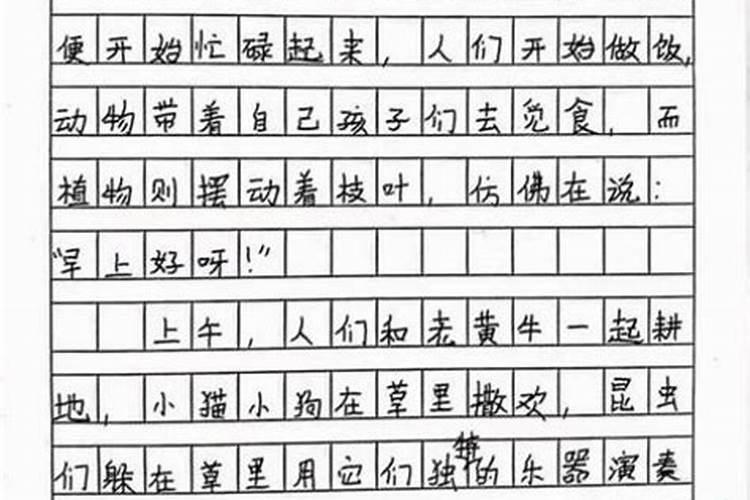 便开始忙碌起来，人们开始做饭，
动物带着自己孩子们去觅食，而
植物则摆动着枝叶，仿佛在说：
“早上好呀！”
上午，人们和老黄牛一起耕
地，小猫小狗在草里撒欢，昆虫
们躲在草里用它们独特的乐器演奏